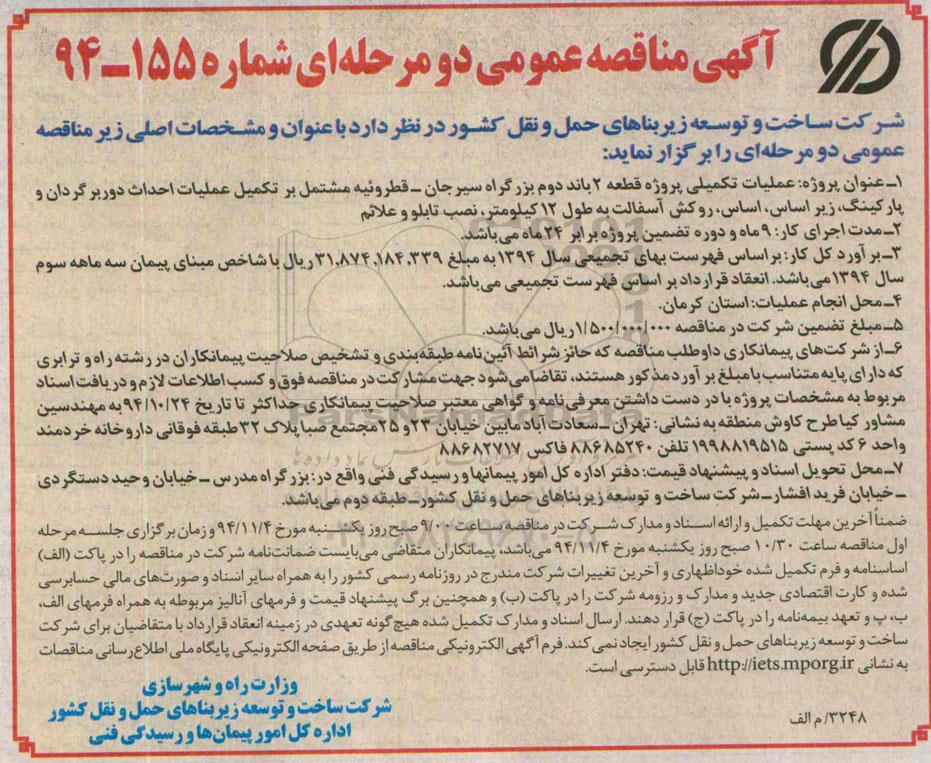 آگهی مناقصه عمومی دو مرحله‌ای شماره ۱۵۵-۹۴
شرکت ساخت و توسعه زیربناهای حمل و نقل کشور در نظر دارد با عنوان و مشخصات اصلی زیر مناقصه
عمومی دو مرحله‌ای را برگزار نماید:
۱ـ عنوان پروژه: عملیات تکمیلی پروژه قطعه ۲ باند دوم بزرگراه سیرجان ـ قطروئیه مشتمل بر تکمیل عملیات احداث دوربرگردان و
پارکینگ، زیر اساس، اساس، روکش آسفالت به طول ۱۲ کیلومتر، نصب تابلو و علائم
۲ـ مدت اجرای کار: ۹ ماه و دوره تضمین پروژه برابر ۲۴ ماه می‌باشد.
۳ـ برآورد کل کار: بر اساس فهرست بهای تجمیعی سال ۱۳۹۴ به مبلغ ۳۱,۸۷۴,۱۸۴,۳۳۹ ریال با شاخص مبنای پیمان سه ماهه سوم
سال ۱۳۹۴ می‌باشد. انعقاد قرارداد بر اساس فهرست تجمیعی می‌باشد.
۴ـ محل انجام عملیات: استان کرمان.
۵ـ مبلغ تضمین شرکت در مناقصه ۱/۵۰۰/۰۰۰/۰۰۰ ریال می‌باشد.
۶ـ از شرکت‌های پیمانکاری داوطلب مناقصه که حائز شرائط آئین‌نامه طبقه‌بندی و تشخیص صلاحیت پیمانکاران در رشته راه و ترابری
که دارای پایه متناسب با مبلغ برآورد مذکور هستند، تقاضا می‌شود جهت مشارکت در مناقصه فوق و کسب اطلاعات لازم و دریافت اسناد
مربوط به مشخصات پروژه با در دست داشتن معرفی‌نامه و گواهی معتبر صلاحیت پیمانکاری حداکثر تا تاریخ ۹۴/۱۰/۲۴ به مهندسین
مشاور کیاطرح کاوش منطقه به نشانی: تهران ـ سعادت آباد مابین خیابان ۲۳ و ۲۵ مجتمع صبا پلاک ۳۲ طبقه فوقانی داروخانه خردمند
واحد ۶ کد پستی ۱۹۹۸۸۱۹۵۱۵ تلفن ۸۸۶۸۵۲۴۰ فاکس ۸۸۶۸۲۷۱۷
۷ـ محل تحویل اسناد و پیشنهاد قیمت: دفتر اداره کل امور پیمانها و رسیدگی فنی واقع در: بزرگراه مدرس ـ خیابان وحید دستگردی
ـ خیابان فرید افشار ـ شرکت ساخت و توسعه زیربناهای حمل و نقل کشور ـ طبقه دوم می‌باشد.
ضمناً آخرین مهلت تکمیل و ارائه اسناد و مدارک شرکت در مناقصه ساعت ۹/۰۰ صبح روز یکشنبه مورخ ۹۴/۱۱/۴ و زمان برگزاری جلسه مرحله
اول مناقصه ساعت ۱۰/۳۰ صبح روز یکشنبه مورخ ۹۴/۱۱/۴ می‌باشد، پیمانکاران متقاضی می‌بایست ضمانت‌نامه شرکت در مناقصه را در پاکت (الف)
اساسنامه و فرم تکمیل شده خوداظهاری و آخرین تغییرات شرکت مندرج در روزنامه رسمی کشور را به همراه سایر اسناد و صورت‌های مالی حسابرسی
شده و کارت اقتصادی جدید و مدارک و رزومه شرکت را در پاکت (ب) و همچنین برگ پیشنهاد قیمت و فرمهای آنالیز مربوطه به همراه فرمهای الف،
ب، پ و تعهد بیمه‌نامه را در پاکت (ج) قرار دهند. ارسال اسناد و مدارک تکمیل شده هیچ‌گونه تعهدی در زمینه انعقاد قرارداد با متقاضیان برای شرکت
ساخت و توسعه زیربناهای حمل و نقل کشور ایجاد نمی‌کند. فرم آگهی الکترونیکی مناقصه از طریق صفحه الکترونیکی پایگاه ملی اطلاع‌رسانی مناقصات
به نشانی http://iets.mporg.ir قابل دسترسی است.
وزارت راه و شهرسازی
شرکت ساخت و توسعه زیربناهای حمل و نقل کشور
اداره کل امور پیمان‌ها و رسیدگی فنی
۳۲۴۸/ م الف